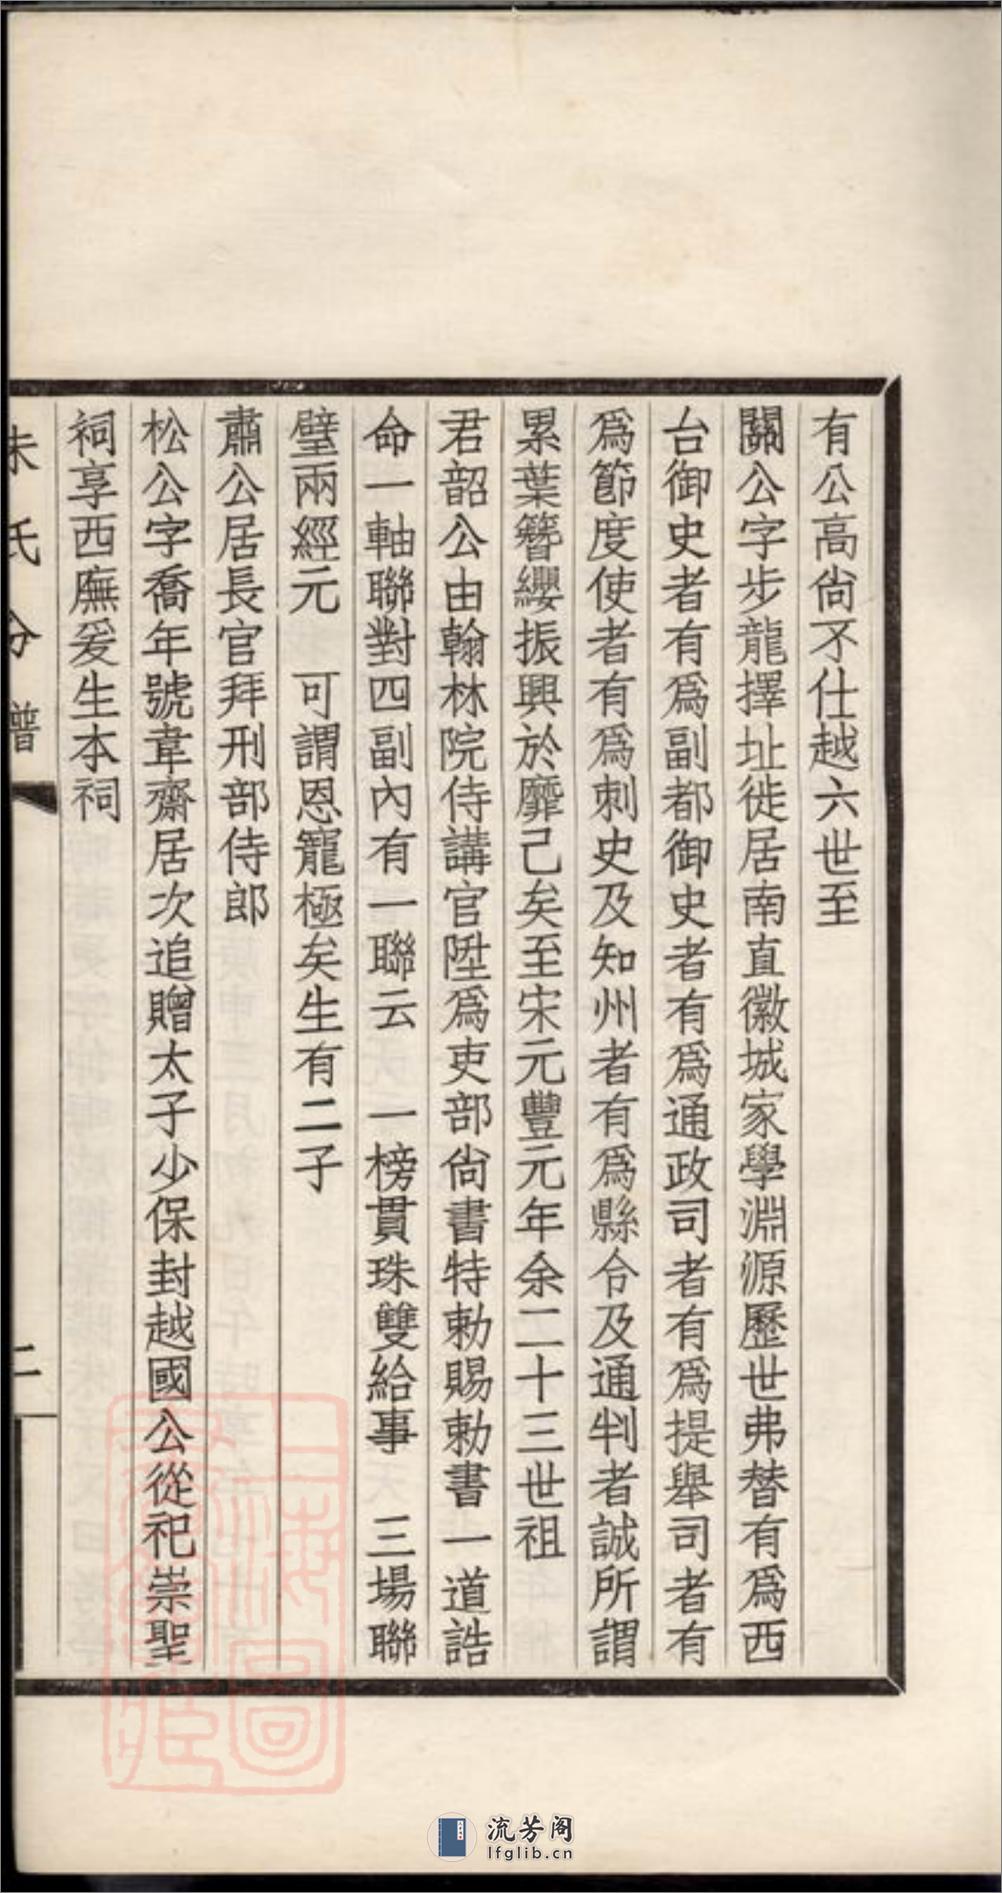 有公高尙不仕越六世至
關公字步龍擇址徙居南直徽城家學淵源歷世弗替有爲西
台御史者有爲副都御史者有爲通政司者有爲提舉司者有
爲節度使者有爲刺史及知州者有爲縣令及通判者誠所謂
累葉簪纓振興於靡己矣至宋元豐元年余二十三世祖
君韶公由翰林院侍講官陞爲吏部尙書特勅賜勅書一道誥
命一軸聯對四副內有一聯云　一榜貫珠雙給事　三場聯
璧兩經元　可謂恩寵極矣生有二子
肅公居長官拜刑部侍郎
松公字喬年號韋齋居次追贈太子少保封越國公從祀崇聖
祠享西廡爰生本祠
朱氏分譜
二
流芳阁
lfglib.cn